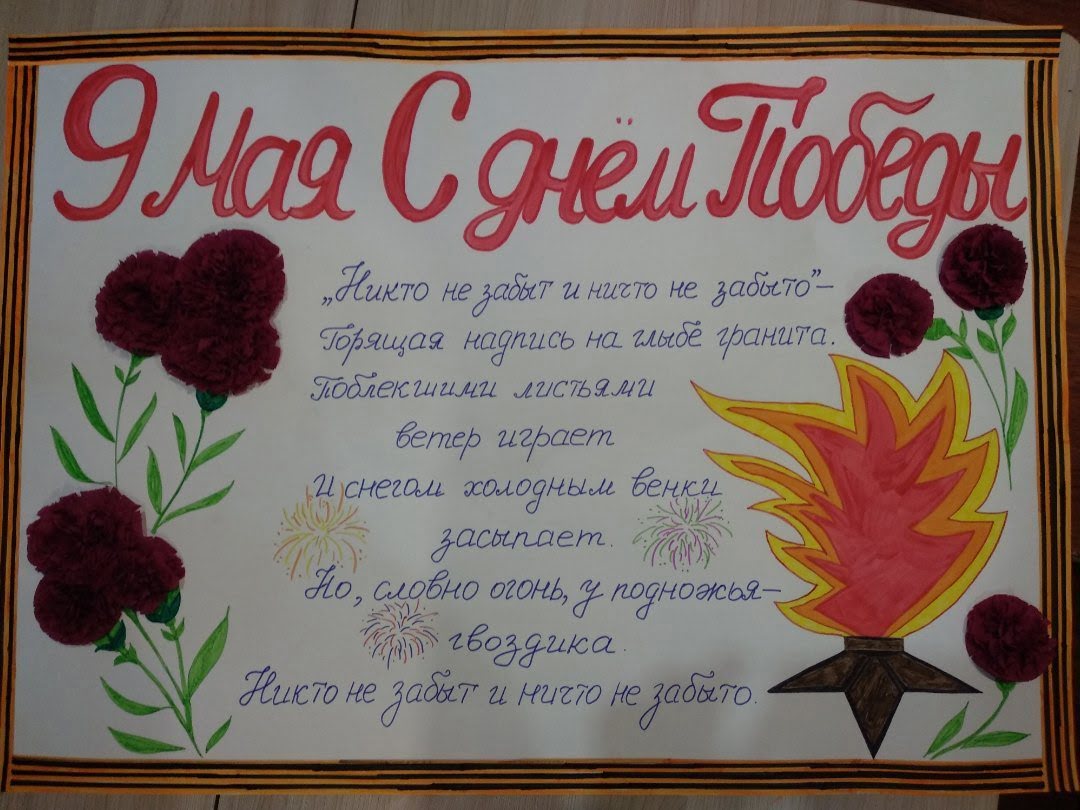 9 Мая С днём Победы
„Никто не забыт и ничто не забыто”–
Горящая надпись на глыбе гранита.
Поблекшими листьями
ветер играет
И снегом холодным венки
засыпает.
Но, словно огонь, у подножья–
гвоздика.
Никто не забыт и ничто не забыто.